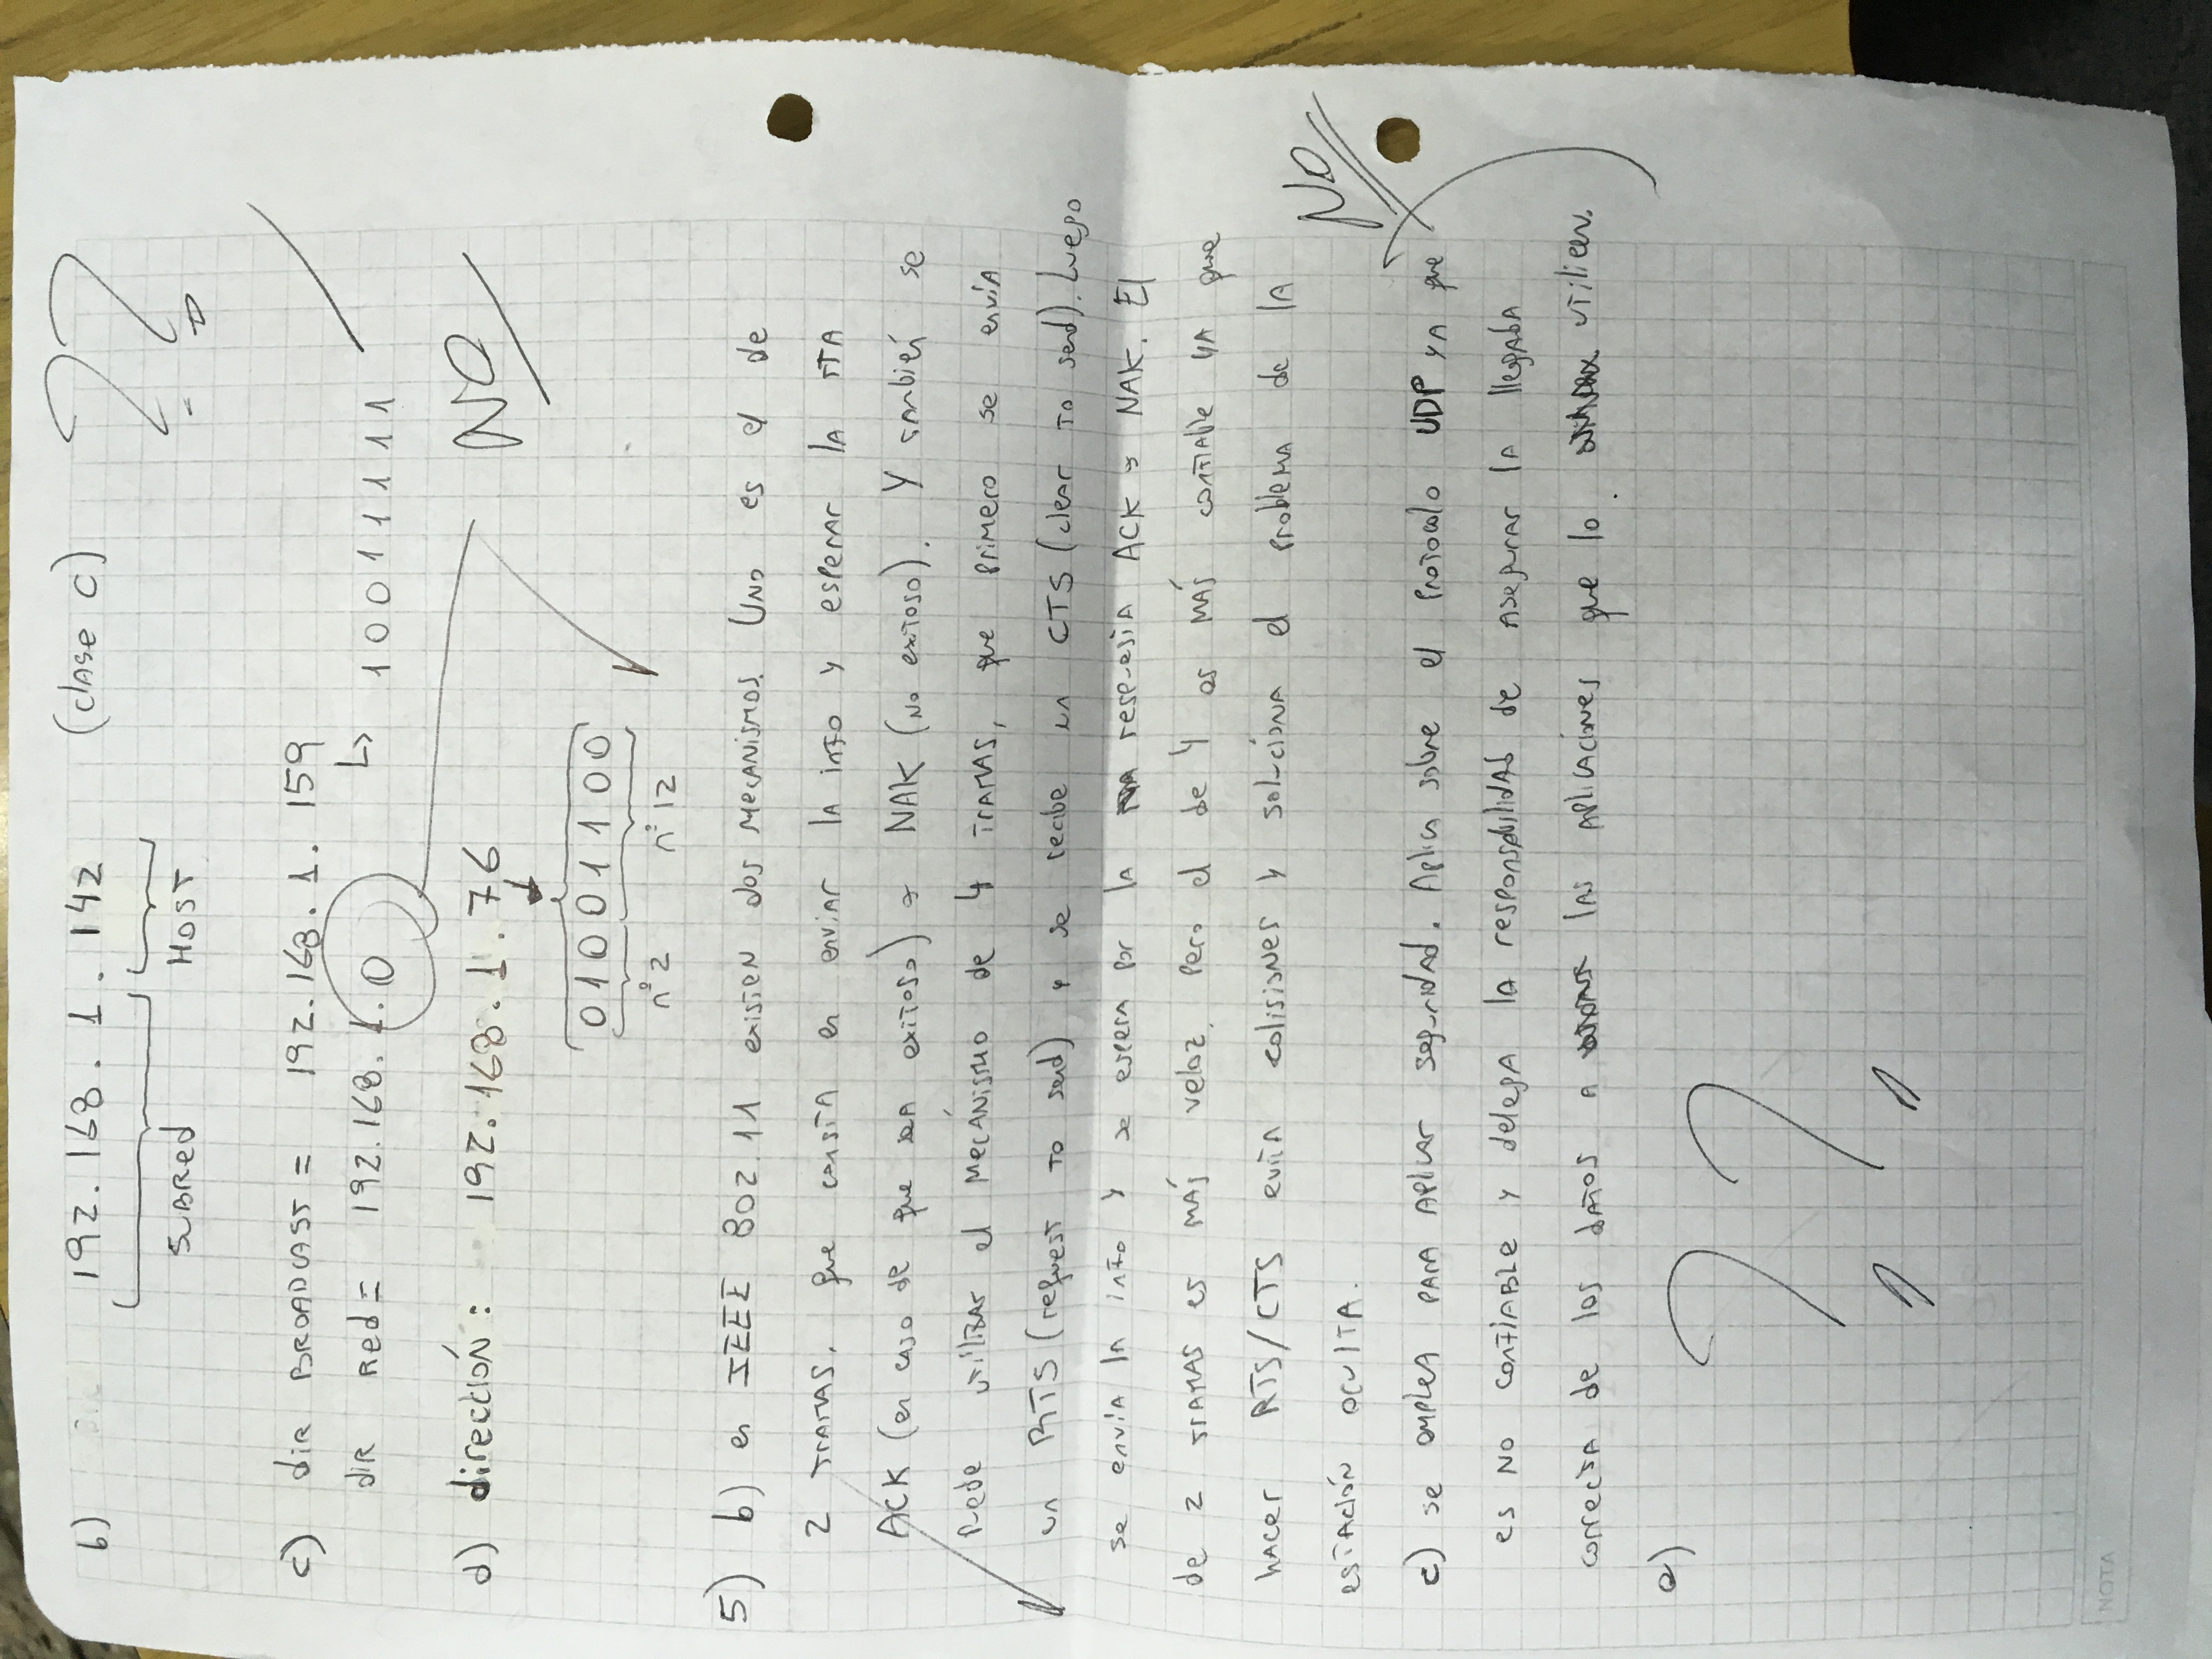 b) 192.168.1.142 (clase C) ??
SUBRed HOST
c) dir BROADCAST = 192.168.1.159
dir Red = 192.168.1.0 ↳ 10011111
NO
d) dirección: 192.168.1.76
01001100
nº2 nº12
5) b) en IEEE 802.11 existen dos mecanismos. Uno es el de
2 tramas, que consta en enviar la info y esperar la rta
ACK (en caso de que sea exitoso) o NAK (no exitoso). Y también se
puede utilizar el mecánismo de 4 tramas, que primero se envía
un RTS (request to send) y se recibe un CTS (clear to send). Luego
se envía la info y se espera por la respuesta ACK o NAK. El
de 2 tramas es más veloz, pero el de 4 es más confiable ya que
hacer RTS/CTS evita colisiones y soluciona el problema de la
estación oculta.
NO
c) se emplea para aplicar seguridad. Aplica sobre el protocolo UDP ya que
es no confiable y delega la responsabilidad de asegurar la llegada
correcta de los datos a las aplicaciones que lo utilicen.
e) ??
NOTA